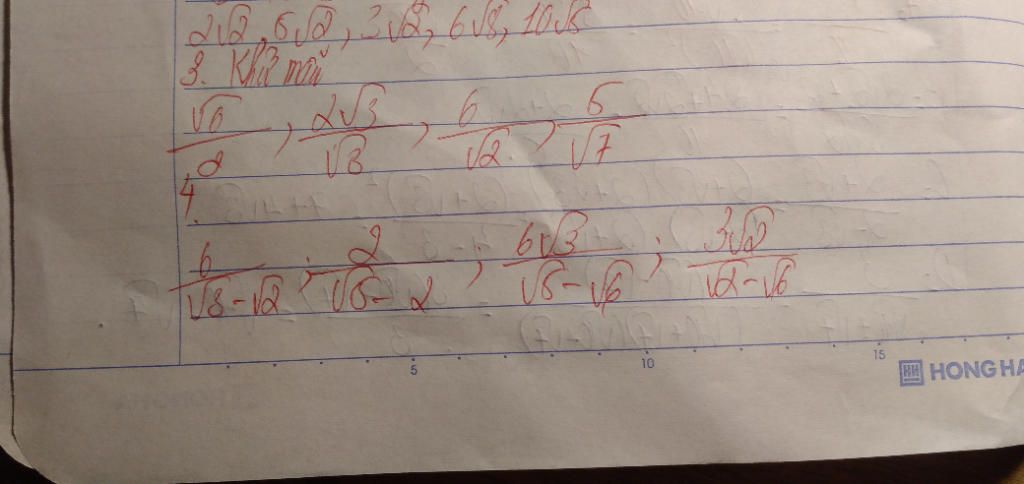 2√2, 5√2, 3√2, 6√8, 10√5
3. Khử mẫu
√6/2, 2√3/√3, 6/√2, 5/√7
4.
6/(√3-√2); 2/(√5-2), 6√3/(√5-√6); 3√2/(√2-√6)
5 10 15
HONG HA